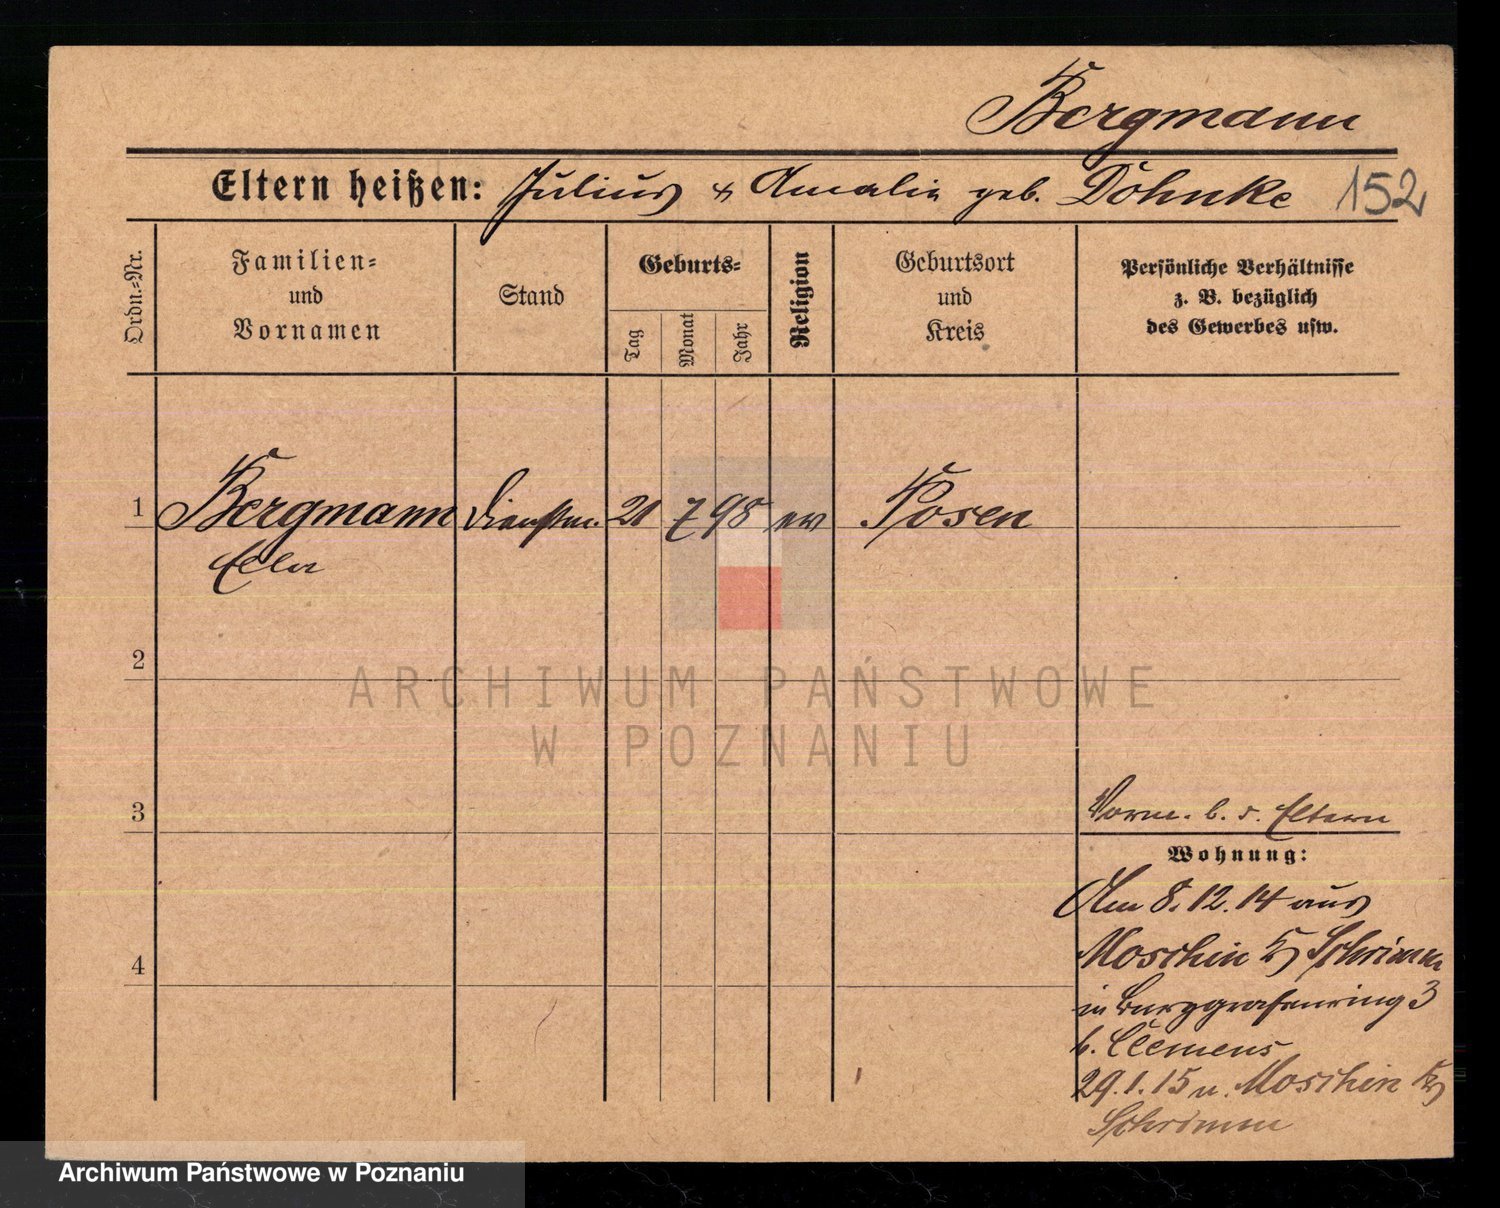 Bergmann
Eltern heißen: Julius & Amalie geb. Döhnke 152
Ordn.=Nr.
Familien=
und
Vornamen
Stand
Geburts=
Tag
Monat
Jahr
Religion
Geburtsort
und
Kreis
Persönliche Verhältnisse
z. B. bezüglich
des Gewerbes usw.
1 Bergmann Dienstm. 21 7 98 ev Posen
Ella
2
ARCHIWUM PAŃSTWOWE
W POZNANIU
3
Vorm. b. d. Eltern
Wohnung:
Am 8.12.14 aus
Moschin Kr Schrimm
4
in Burggrafenring 3
b. Clemens
29.1.15 n. Moschin Kr
Schrimm
Archiwum Państwowe w Poznaniu